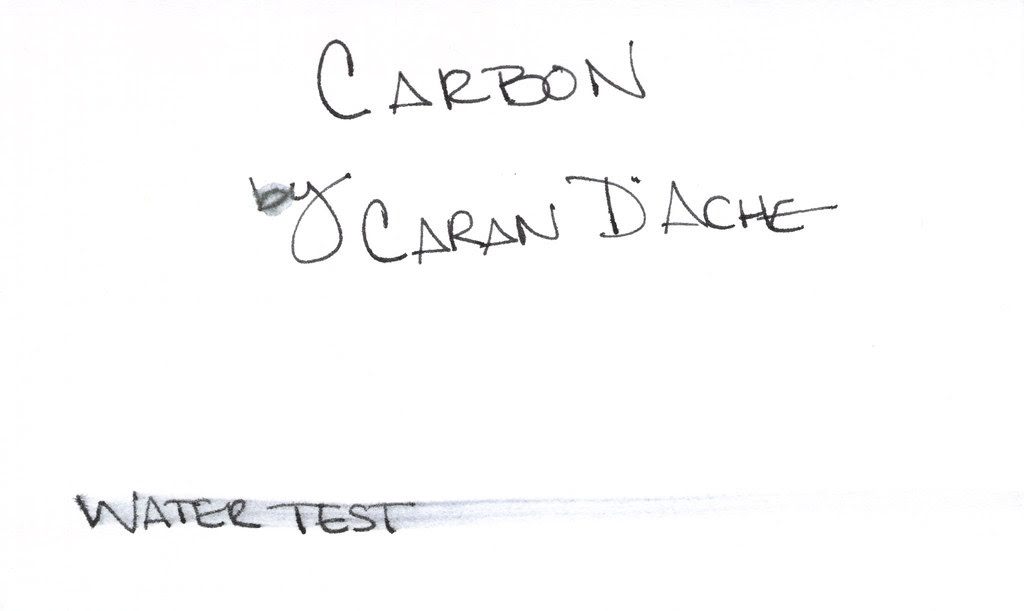 CARBON
by CARAN D'ACHE
WATER TEST